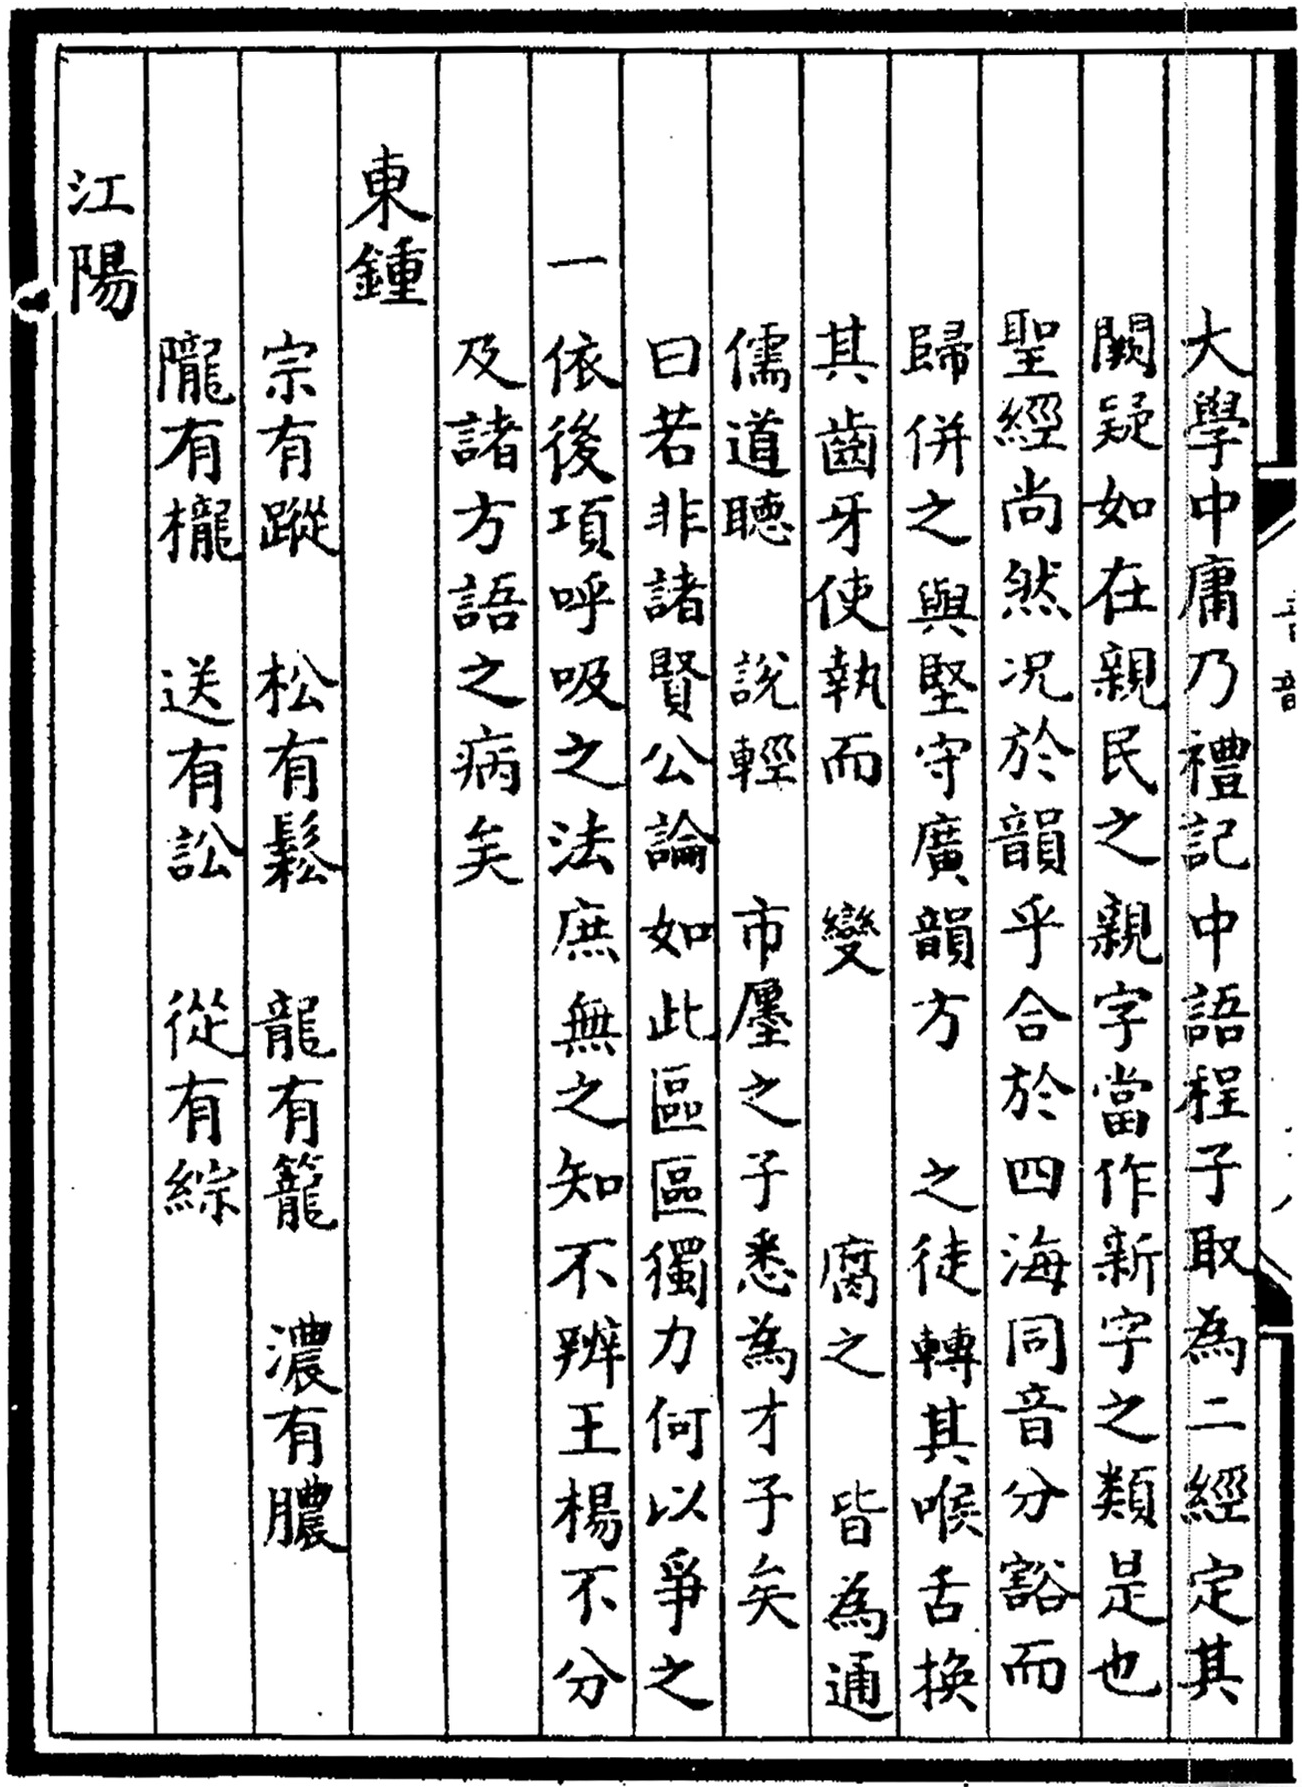 大學中庸乃禮記中語程子取為二經定其
闕疑如在親民之親字當作新字之類是也
聖經尚然况於韻乎合於四海同音分豁而
歸併之與堅守廣韻方　之徒轉其喉舌換
其齒牙使執而　變　　腐之　皆為通
儒道聽　說輕　市廛之子悉為才子矣
曰若非諸賢公論如此區區獨力何以爭之
一依後項呼吸之法庶無之知不辨王楊不分
及諸方語之病矣
東鍾
宗有蹤　松有鬆　龍有籠　濃有膿
隴有櫳　送有訟　從有綜
江陽